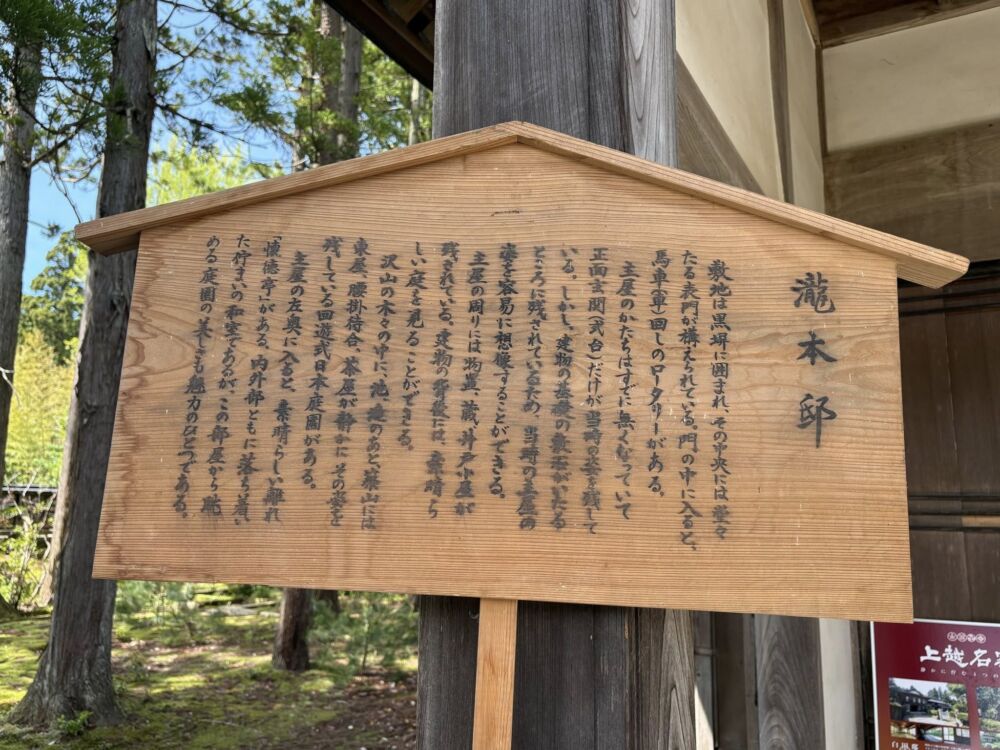 瀧本邸
敷地は黒塀に囲まれ、その中央には堂々
たる表門が構えられている。門の中に入ると、
馬車(車)回しのロータリーがある。
主屋のかたちはすでに無くなっていて
正面玄関(式台)だけが当時の姿を残して
いる。しかし、建物の基礎の敷石がいたる
ところに残されているため、当時の主屋の
姿を容易に想像することができる。
主屋の周りには物置、蔵、井戸小屋が
残されている。建物の背後には、素晴ら
しい庭を見ることができる。
沢山の木々の中に、池、滝のあと、築山には
東屋、腰掛待合、茶屋が静かにその姿を
残している回遊式日本庭園がある。
主屋の左奥に入ると、素晴らしい離れ
「懐徳亭」がある。内外部ともに落ち着い
た佇まいの和室であるが、この部屋から眺
める庭園の美しさも魅力のひとつである。
上越名家